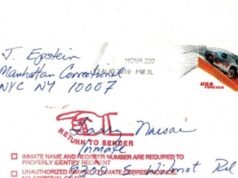 J. Epstein
Manhattan Correctional
NYC NY 10007
NOVA 220
AUG 2019 PM 3L
USA
FOREVER
RETURN TO SENDER
Larry Nassar
Inmate
9300 S. Wilmot Rd
INMATE NAME AND REGISTER NUMBER ARE REQUIRED TO
PROPERLY IDENTIFY RECIPIENT
UNAUTHORIZED